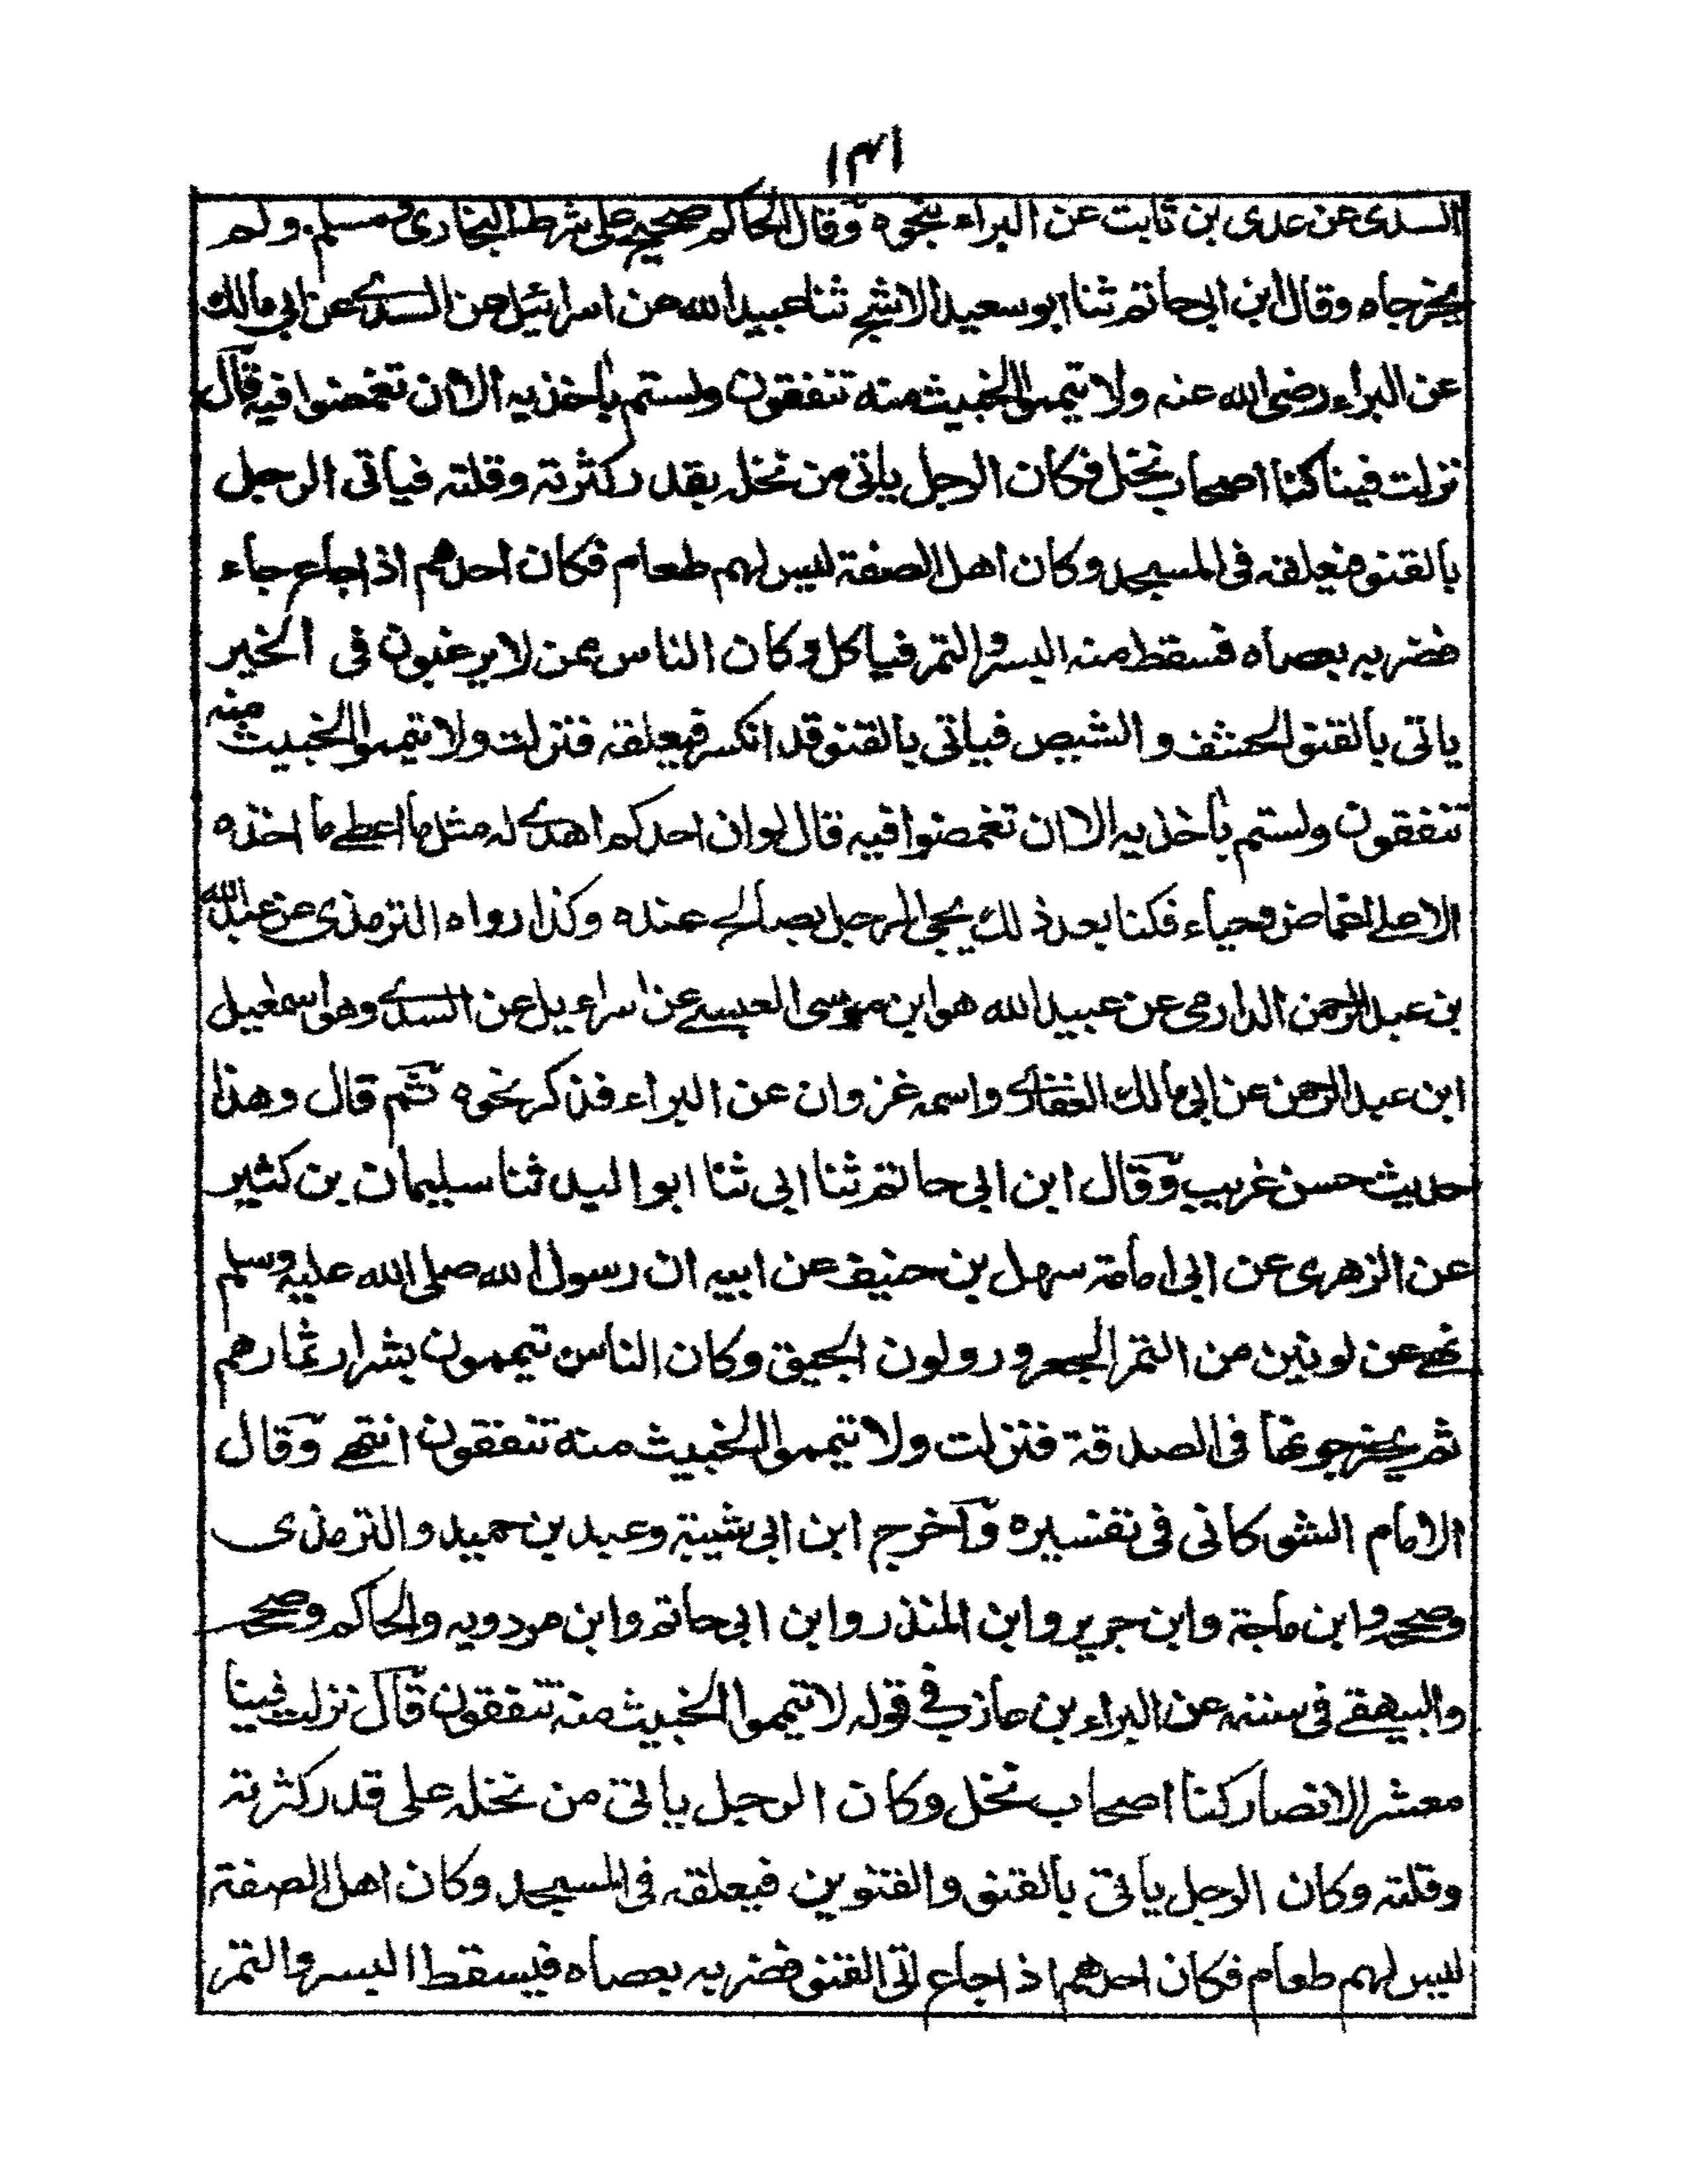 ١٣١
السدى عن عدى بن ثابت عن البراء بنحوه وقال الحاكم صحيح على شرط البخارى ومسلم ولم
يخرجاه وقال ابن ابى حاتم ثنا ابو سعيد الاشج ثنا عبيد الله عن اسرائيل عن السدى عن ابى مالك
عن البراء رضى الله عنه ولا تيمموا الخبيث منه تنفقون ولستم بأخذيه الا ان تغمضوا فيه قال
نزلت فينا كنا اصحاب نخل فكان الرجل يأتى من نخله بقدر كثرته وقلته فيأتى الرجل
بالقنو فيعلقه فى المسجد وكان اهل الصفة ليس لهم طعام فكان احدهم اذا جاع جاء
فضربه بعصاه فسقط منه البسر والتمر فياكل وكان الناس ممن لا يرغبون فى الخير
ياتى بالقنو الحشف والشيص فياتى بالقنو قد انكسر فيعلقه فنزلت ولا تيمموا الخبيث منه
تنفقون ولستم بأخذيه الا ان تغمضوا فيه قال لو ان احدكم اهدى له مثل ما اعطى ما اخذه
الا على اغماض وحياء فكنا بعد ذلك يجئ الرجل بصالح عنده وكذا رواه الترمذى عن عبد الله
بن عبد الرحمن الدارمى عن عبيد الله هو ابن موسى العبسى عن اسراءيل عن السدى وهو اسمعيل
ابن عبد الرحمن عن ابى مالك الغفارى واسمه غزوان عن البراء فذكر نحوه ثم قال وهذا
حديث حسن غريب وقال ابن ابى حاتم ثنا ابى ثنا ابو اليد ثنا سليمان بن كثير
عن الزهرى عن ابى امامة سهل بن حنيف عن ابيه ان رسول الله صلى الله عليه وسلم
نهى عن لونين من التمر الجعرور ولون الحبيق وكان الناس تيممون بشرار ثمارهم
ثم يخرجونها فى الصدقة فنزلت ولا تيمموا الخبيث منه تنفقون انتهى وقال
الامام الشوكانى فى تفسيره وأخرج ابن ابى شيبة وعبد بن حميد والترمذى
وصححه وابن ماجة وابن جرير وابن المنذر وابن ابى حاتم وابن مردويه والحاكم وصححه
والبيهقى فى سننه عن البراء بن عازب فى قوله لا تيمموا الخبيث منه تنفقون قال نزلت فينا
معشر الانصار كنا اصحاب نخل وكان الرجل ياتى من نخله على قدر كثرته
وقلته وكان الرجل ياتى بالقنو والقنوين فيعلقه فى المسجد وكان اهل الصفة
ليس لهم طعام فكان احدهم اذا جاع اتى القنو فضربه بعصاه فيسقط البسر والتمر